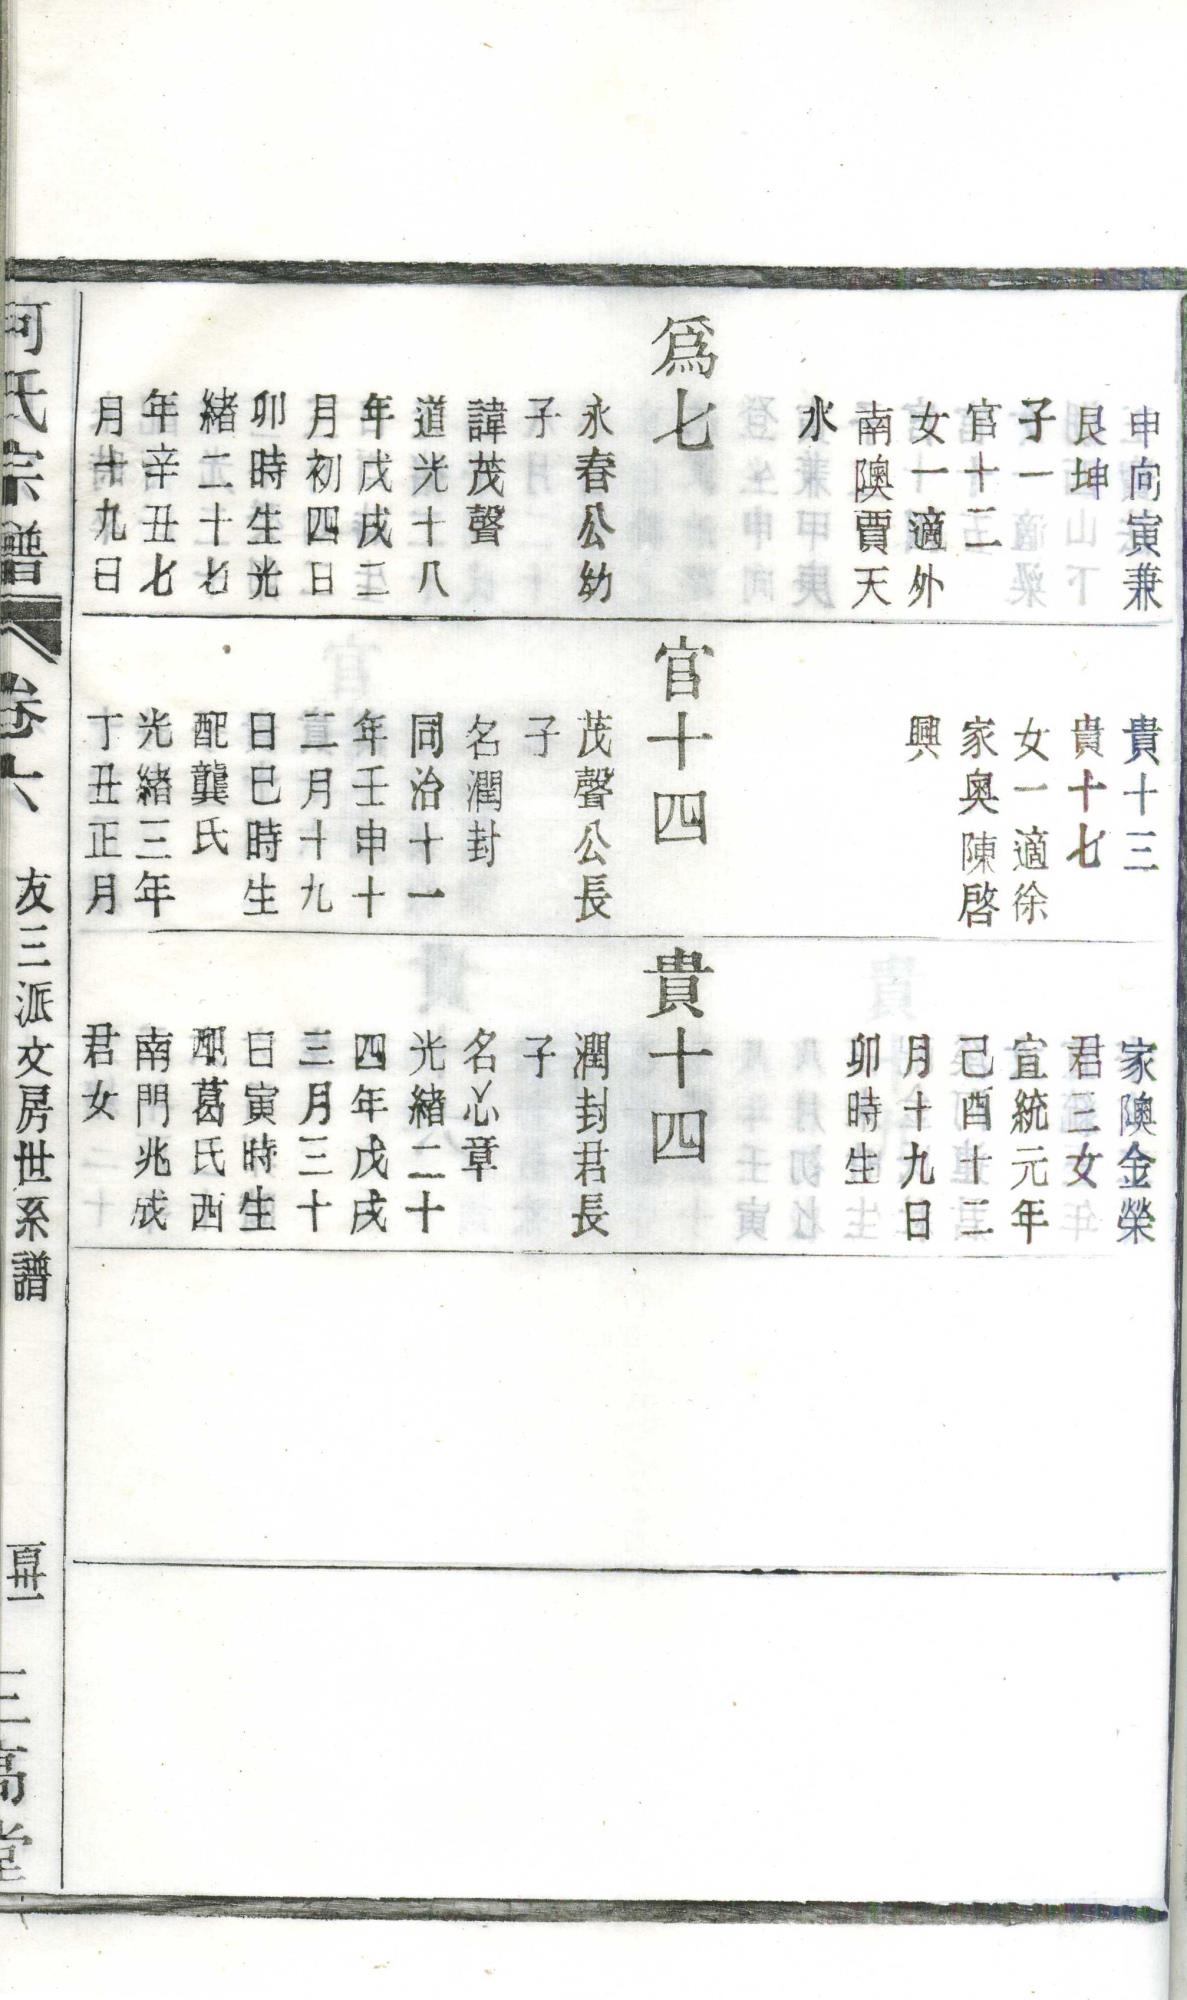 申向寅兼
艮坤
子一
官十二
女一適外
南隩賈天
水
爲七
永春公幼
子
諱茂聲
道光十八
年戊戌三
月初四日
卯時生光
緒二十七
年辛丑七
月十九日
貴十三
貴十七
女一適徐
家奥陳啓
興
官十四
茂聲公長
子
名潤封
同治十一
年壬申十
二月十九
日巳時生
配龔氏
光緒三年
丁丑正月
家隩金榮
君三女
宣統元年
己酉十二
月十九日
卯時生
貴十四
潤封君長
子
名心章
光緒二十
四年戊戌
三月三十
日寅時生
配葛氏西
南門兆成
君女
何氏宗譜
卷六
友三派文房世系譜
三高堂